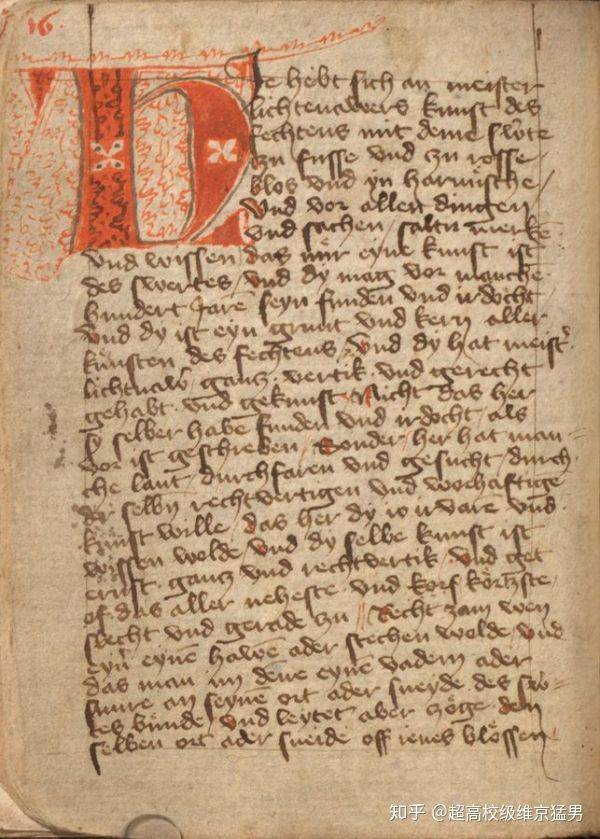 16
Hie hebt sich an meister
lichtenawers kunst des
fechtens mit deme swˢte
zu fusse vnd zu rosse
blos vnd yn harnüsche
Vnd vor allen dingen
vnd sachen saltu merkē
vnd wissen das nür eyne kunst ist
des swertes vnd dy mag vor manche
hundert Jare seyn funden vnd irdocht
vnd dy ist eyn grunt vnd kern aller
künsten des fechtens vnd dy hat meistˢ
lichtenawˢ gancz vertik vnd gerecht
gehabt vnd gekunst Nicht das her
sy selber habe funden vnd irdocht als
vor ist geschreben Sonder her hat man=
che lant durchfaren vnd gesucht durch
der selbn rechtvertigen vnd worhaftige
kunst wille das her dy io irvarē vnd
wissen wolde vnd dy selbe kunst ist
ernst gancz vnd rechtvertik vnd get
of das aller neheste vnd körtzste
slecht vnd gerade zu Recht zam wen
eynˢ eynē hawē ader stechen wolde vnd
das man im dene eynē vadem ader
snure an seynē ort ader sneyde des sw=
tes bünde vnd leytet ader czöge den
selben ort ader sneide off ienes blössen
知乎 @超高校级维京猛男